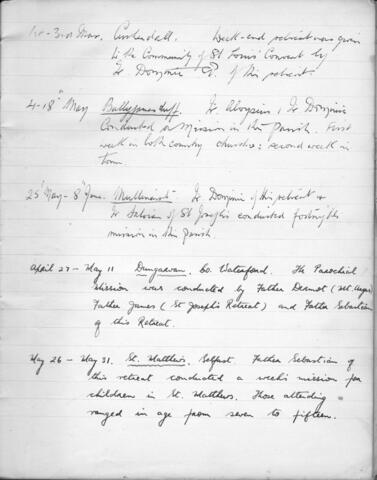 1st - 3rd Mar. Cushendall. Week-end retreat was given
to the Community of St Louis' Convent by
Fr Dominic C.P. of this retreat.
4-18th May Fr. Aloysius, Fr Dominic
Conducted a mission in this parish. First
week in both country churches: second week in
town.
25 May - 8 June. Fr. Dominic of this retreat &
Fr of St Joseph's conducted fortnight's
mission in this Parish.
April 27 - May 11 Dungarvan, Co. Waterford. The Parochial
mission was conducted by Father Dermot (Mt. Argus)
Father James (St Joseph's Retreat) and Father Sebastian
of this Retreat.
May 26 - May 31. St. Matthews, Belfast. Father Sebastian of
this retreat conducted a week's mission for
children in St. Matthews. Those attending
ranged in age from seven to fifteen.